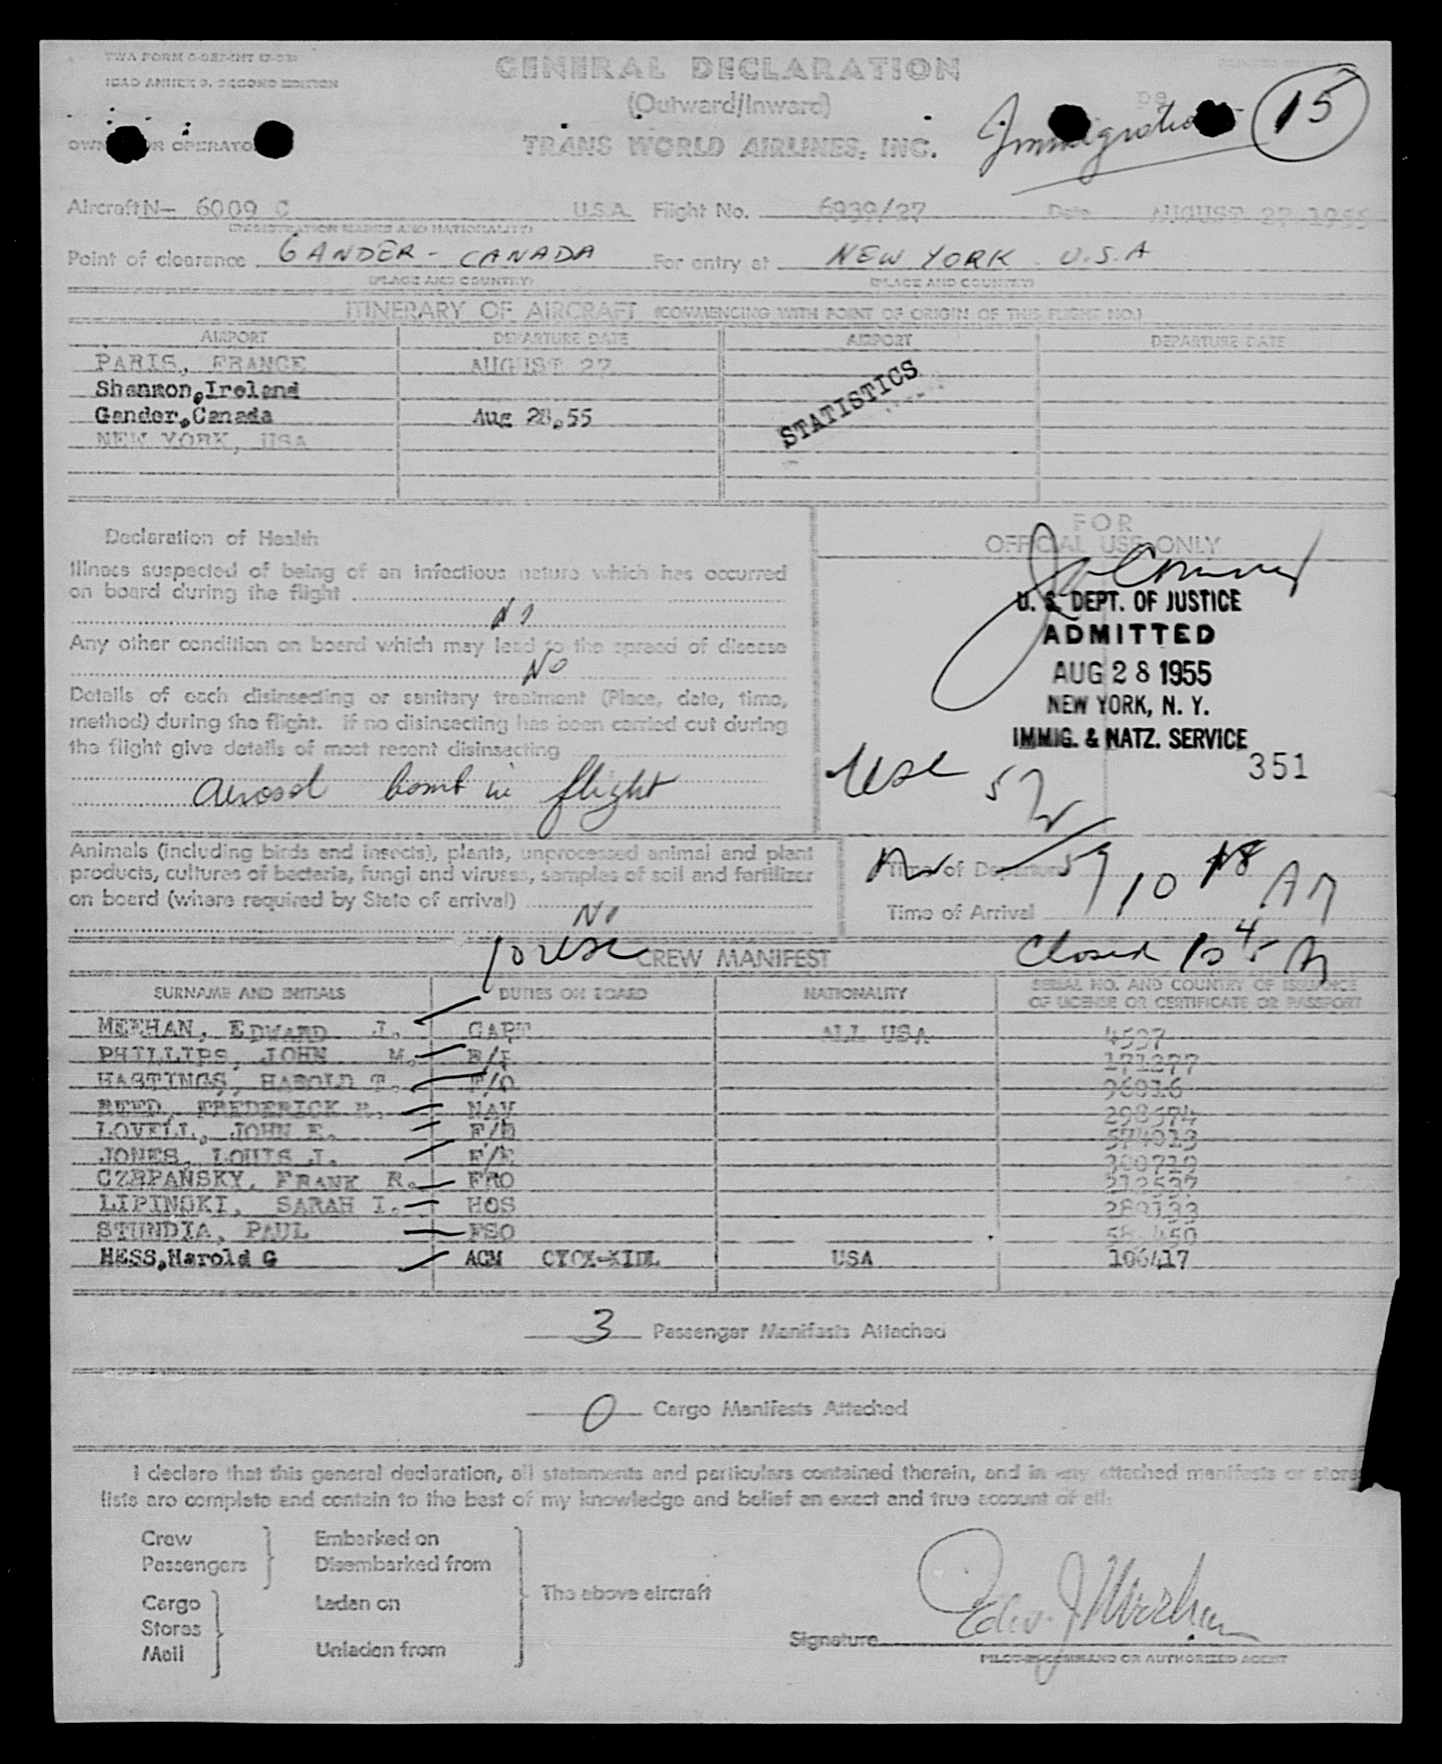 ICAO ANNEX 9, SECOND EDITION
GENERAL DECLARATION
(Outward/Inward)
OWNER OR OPERATOR
TRANS WORLD AIRLINES, INC.
Immigration 15
Aircraft N- 6009 C U.S.A. Flight No. 6939/27 Date AUGUST 27, 1955
(REGISTRATION MARKS AND NATIONALITY)
Point of clearance GANDER - CANADA For entry at NEW YORK U.S.A
(PLACE AND COUNTRY) (PLACE AND COUNTRY)
ITINERARY OF AIRCRAFT (COMMENCING WITH POINT OF ORIGIN OF THIS FLIGHT NO.)
AIRPORT DEPARTURE DATE AIRPORT DEPARTURE DATE
PARIS, FRANCE AUGUST 27
Shannon, Ireland
Gander, Canada Aug 28, 55
NEW YORK, USA
STATISTICS
Declaration of Health
Illness suspected of being of an infectious nature which has occurred
on board during the flight
No
Any other condition on board which may lead to the spread of disease
No
Details of each disinsecting or sanitary treatment (Place, date, time,
method) during the flight. If no disinsecting has been carried out during
the flight give details of most recent disinsecting
aerosol bomb in flight
FOR
OFFICIAL USE ONLY
U. S. DEPT. OF JUSTICE
ADMITTED
AUG 28 1955
NEW YORK, N. Y.
IMMIG. & NATZ. SERVICE
351
Animals (including birds and insects), plants, unprocessed animal and plant
products, cultures of bacteria, fungi and viruses, samples of soil and fertilizer
on board (where required by State of arrival)
No
Time of Departure
Time of Arrival
10 18 AM
Closed 10 45 AM
CREW MANIFEST
SURNAME AND INITIALS DUTIES ON BOARD NATIONALITY SERIAL NO. AND COUNTRY OF ISSUANCE
OF LICENSE OR CERTIFICATE OR PASSPORT
MEEHAN, EDWARD J. CAPT ALL USA 4537
PHILLIPS, JOHN M. 171277
HASTINGS, HAROLD T. F/O 96816
REED, FREDERICK R. NAV
LOVELL, JOHN E. 574013
JONES, LOUIS J. F/E 300719
CZEPANSKY, FRANK R. FRO 212537
LIPINSKI, SARAH I. HOS 289133
STUNDIA, PAUL FSO
HESS, Harold G ACM CYQX-KIDL USA 106417
3 Passenger Manifests Attached
0 Cargo Manifests Attached
I declare that this general declaration, all statements and particulars contained therein, and in any attached manifests or stores
lists are complete and contain to the best of my knowledge and belief an exact and true account of all:
Crew Embarked on
Passengers Disembarked from
The above aircraft
Cargo Laden on
Stores
Mail Unladen from
Signature Edw. J Meehan
PILOT-IN-COMMAND OR AUTHORIZED AGENT